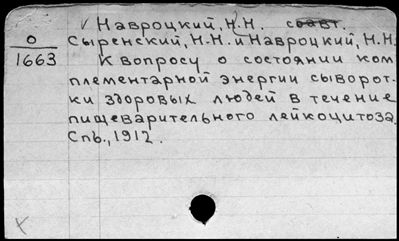 Навроцкий, Н.Н. соавт.
О
1663
Сыренский, Н.Н. и Навроцкий, Н.Н.
К вопросу о состоянии ком
плементарной энергии сыворот-
ки здоровых людей в течение
пищеварительного лейкоцитоза.
Спб., 1912.